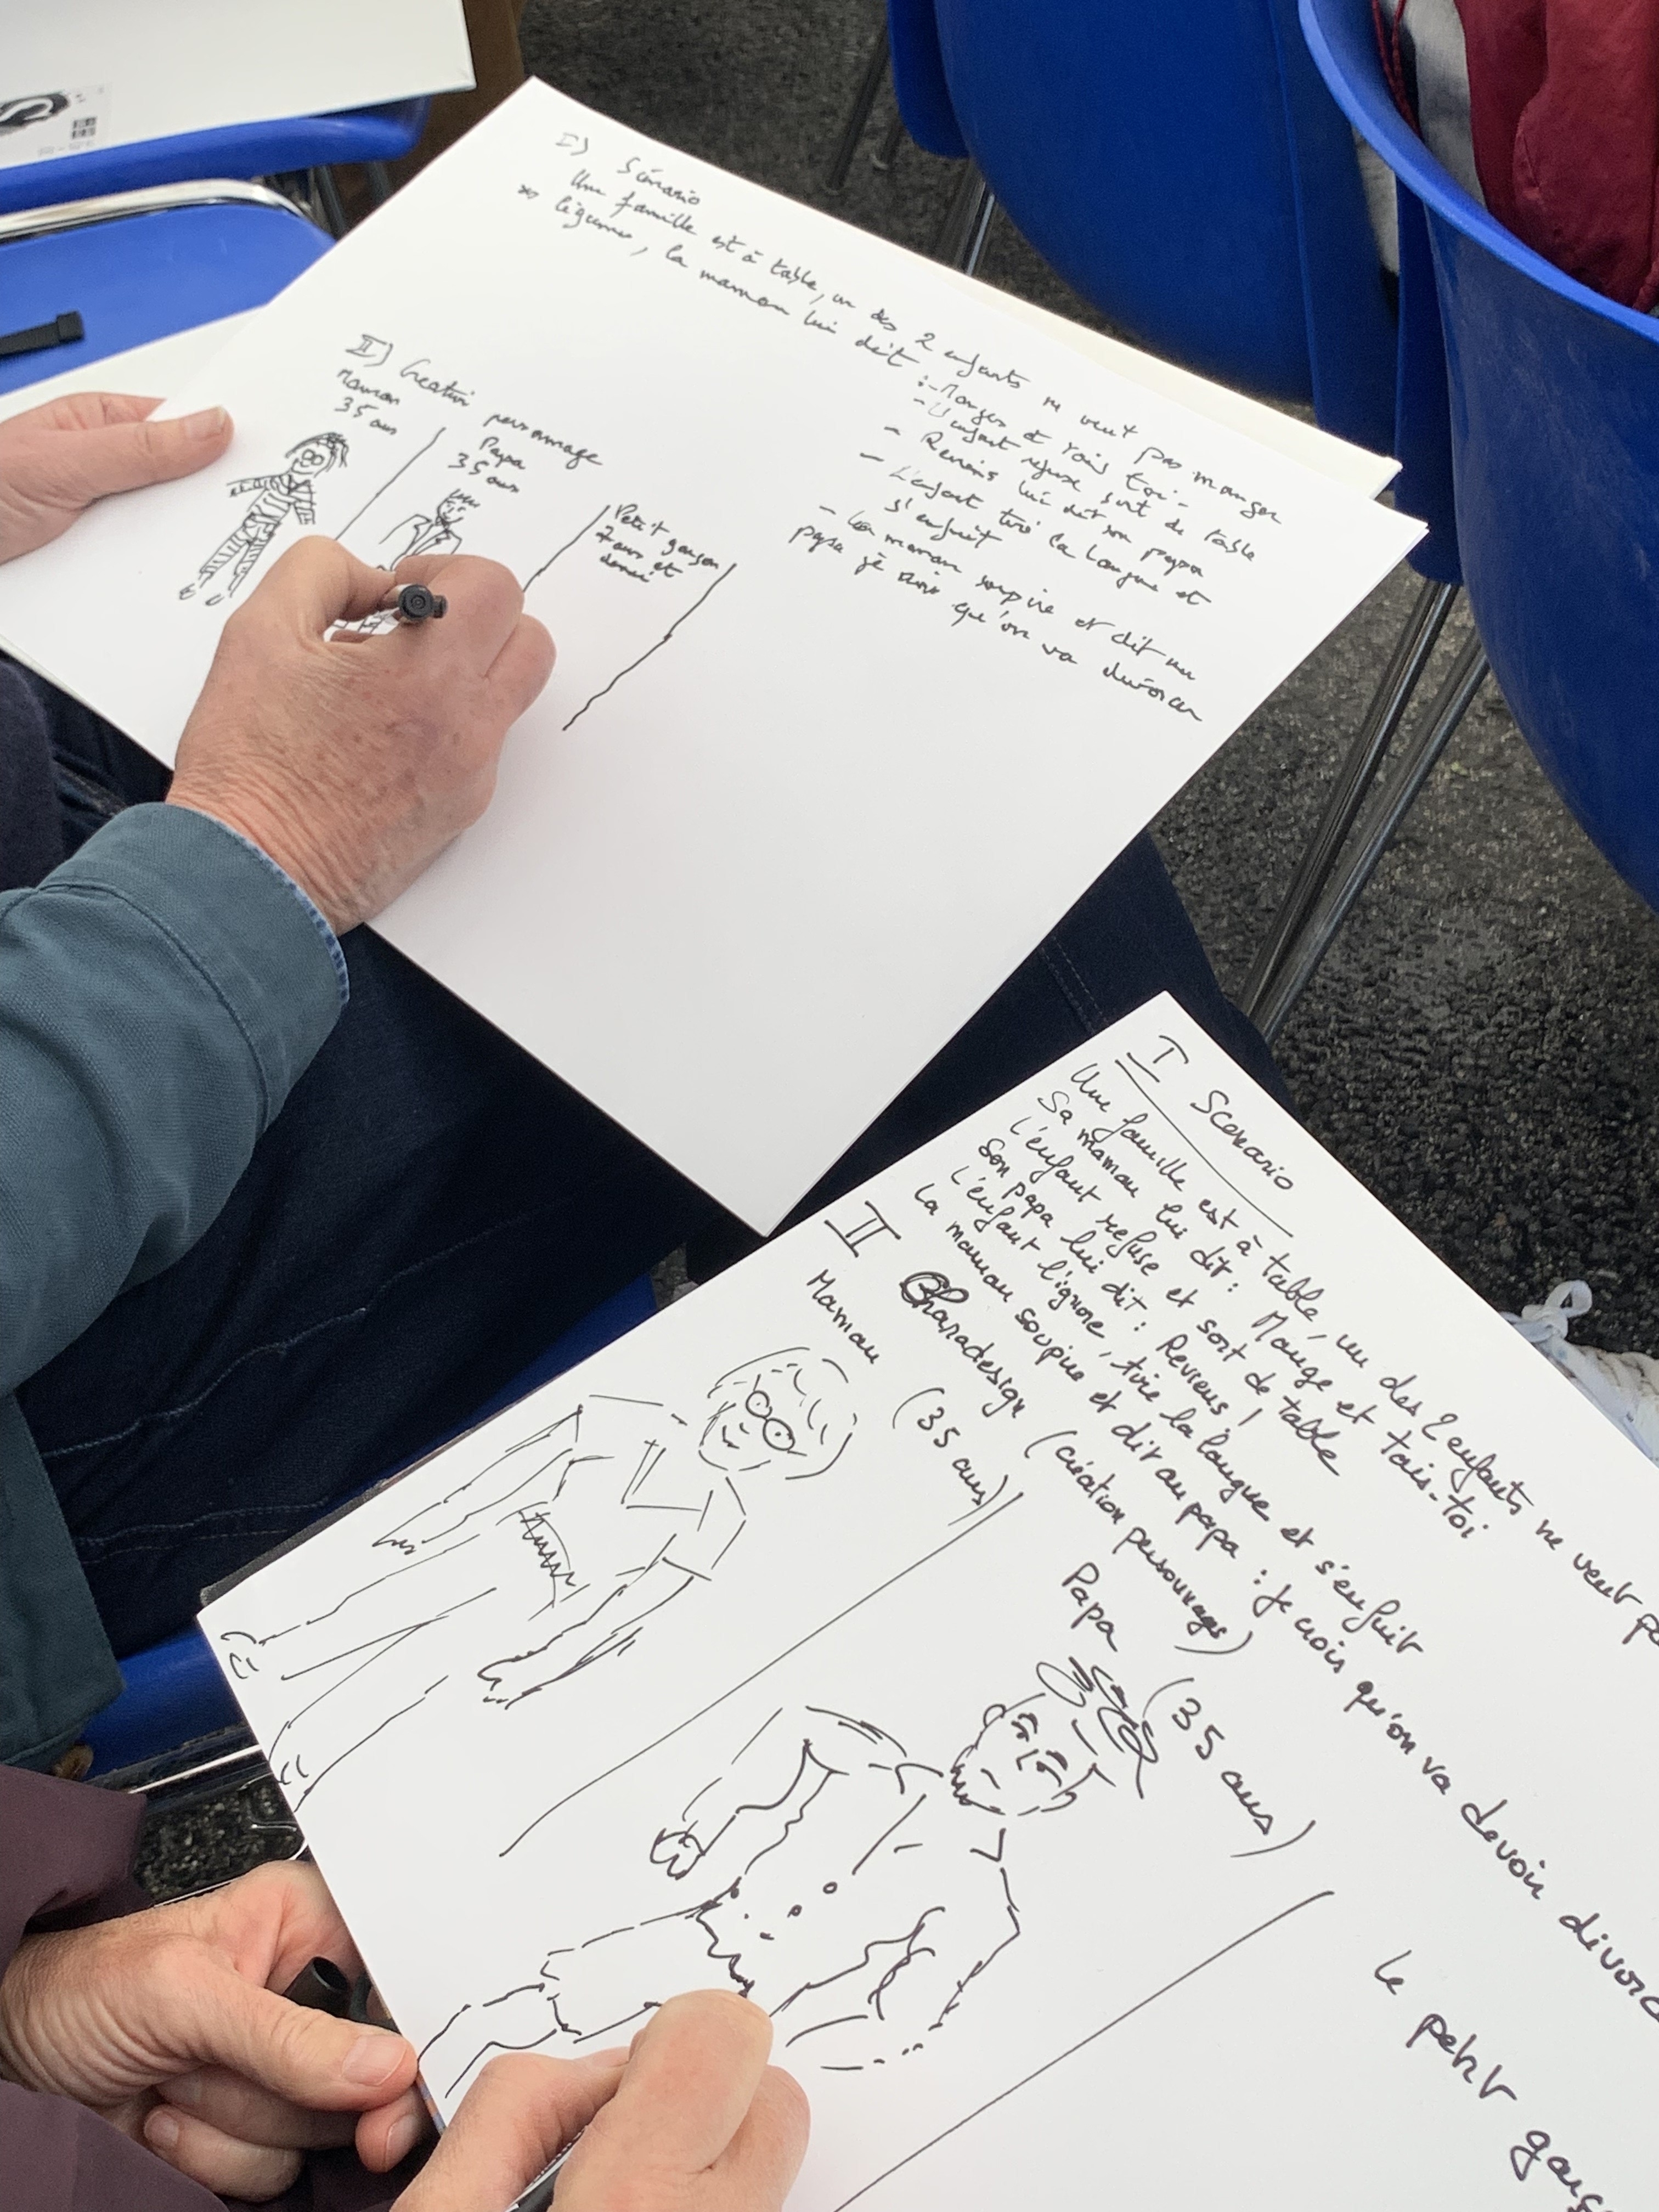 I) Scénario
Une famille est à table, un des 2 enfants ne veut pas manger
légumes, la maman lui dit :- Manges et tais toi -
- L'enfant refuse sort de table
- Reviens lui dit son papa
- L'enfant tire la langue et
s'enfuit
- La maman soupire et dit au
papa je crois qu'on va divorcer
II) Creation personnage
Maman
35 ans
Papa
35 ans
Petit garçon
7 ans et
demi
I Scenario
Une famille est à table, un des 2 enfants ne veut
Sa maman lui dit : Mange et tais-toi
L'enfant refuse et sort de table
Son papa lui dit : Reviens !
L'enfant l'ignore, tire la langue et s'enfuit
La maman soupire et dit au papa : Je crois qu'on va devoir
II Charadesign (création personnages)
Maman (35 ans)
Papa (35 ans)
Le petit